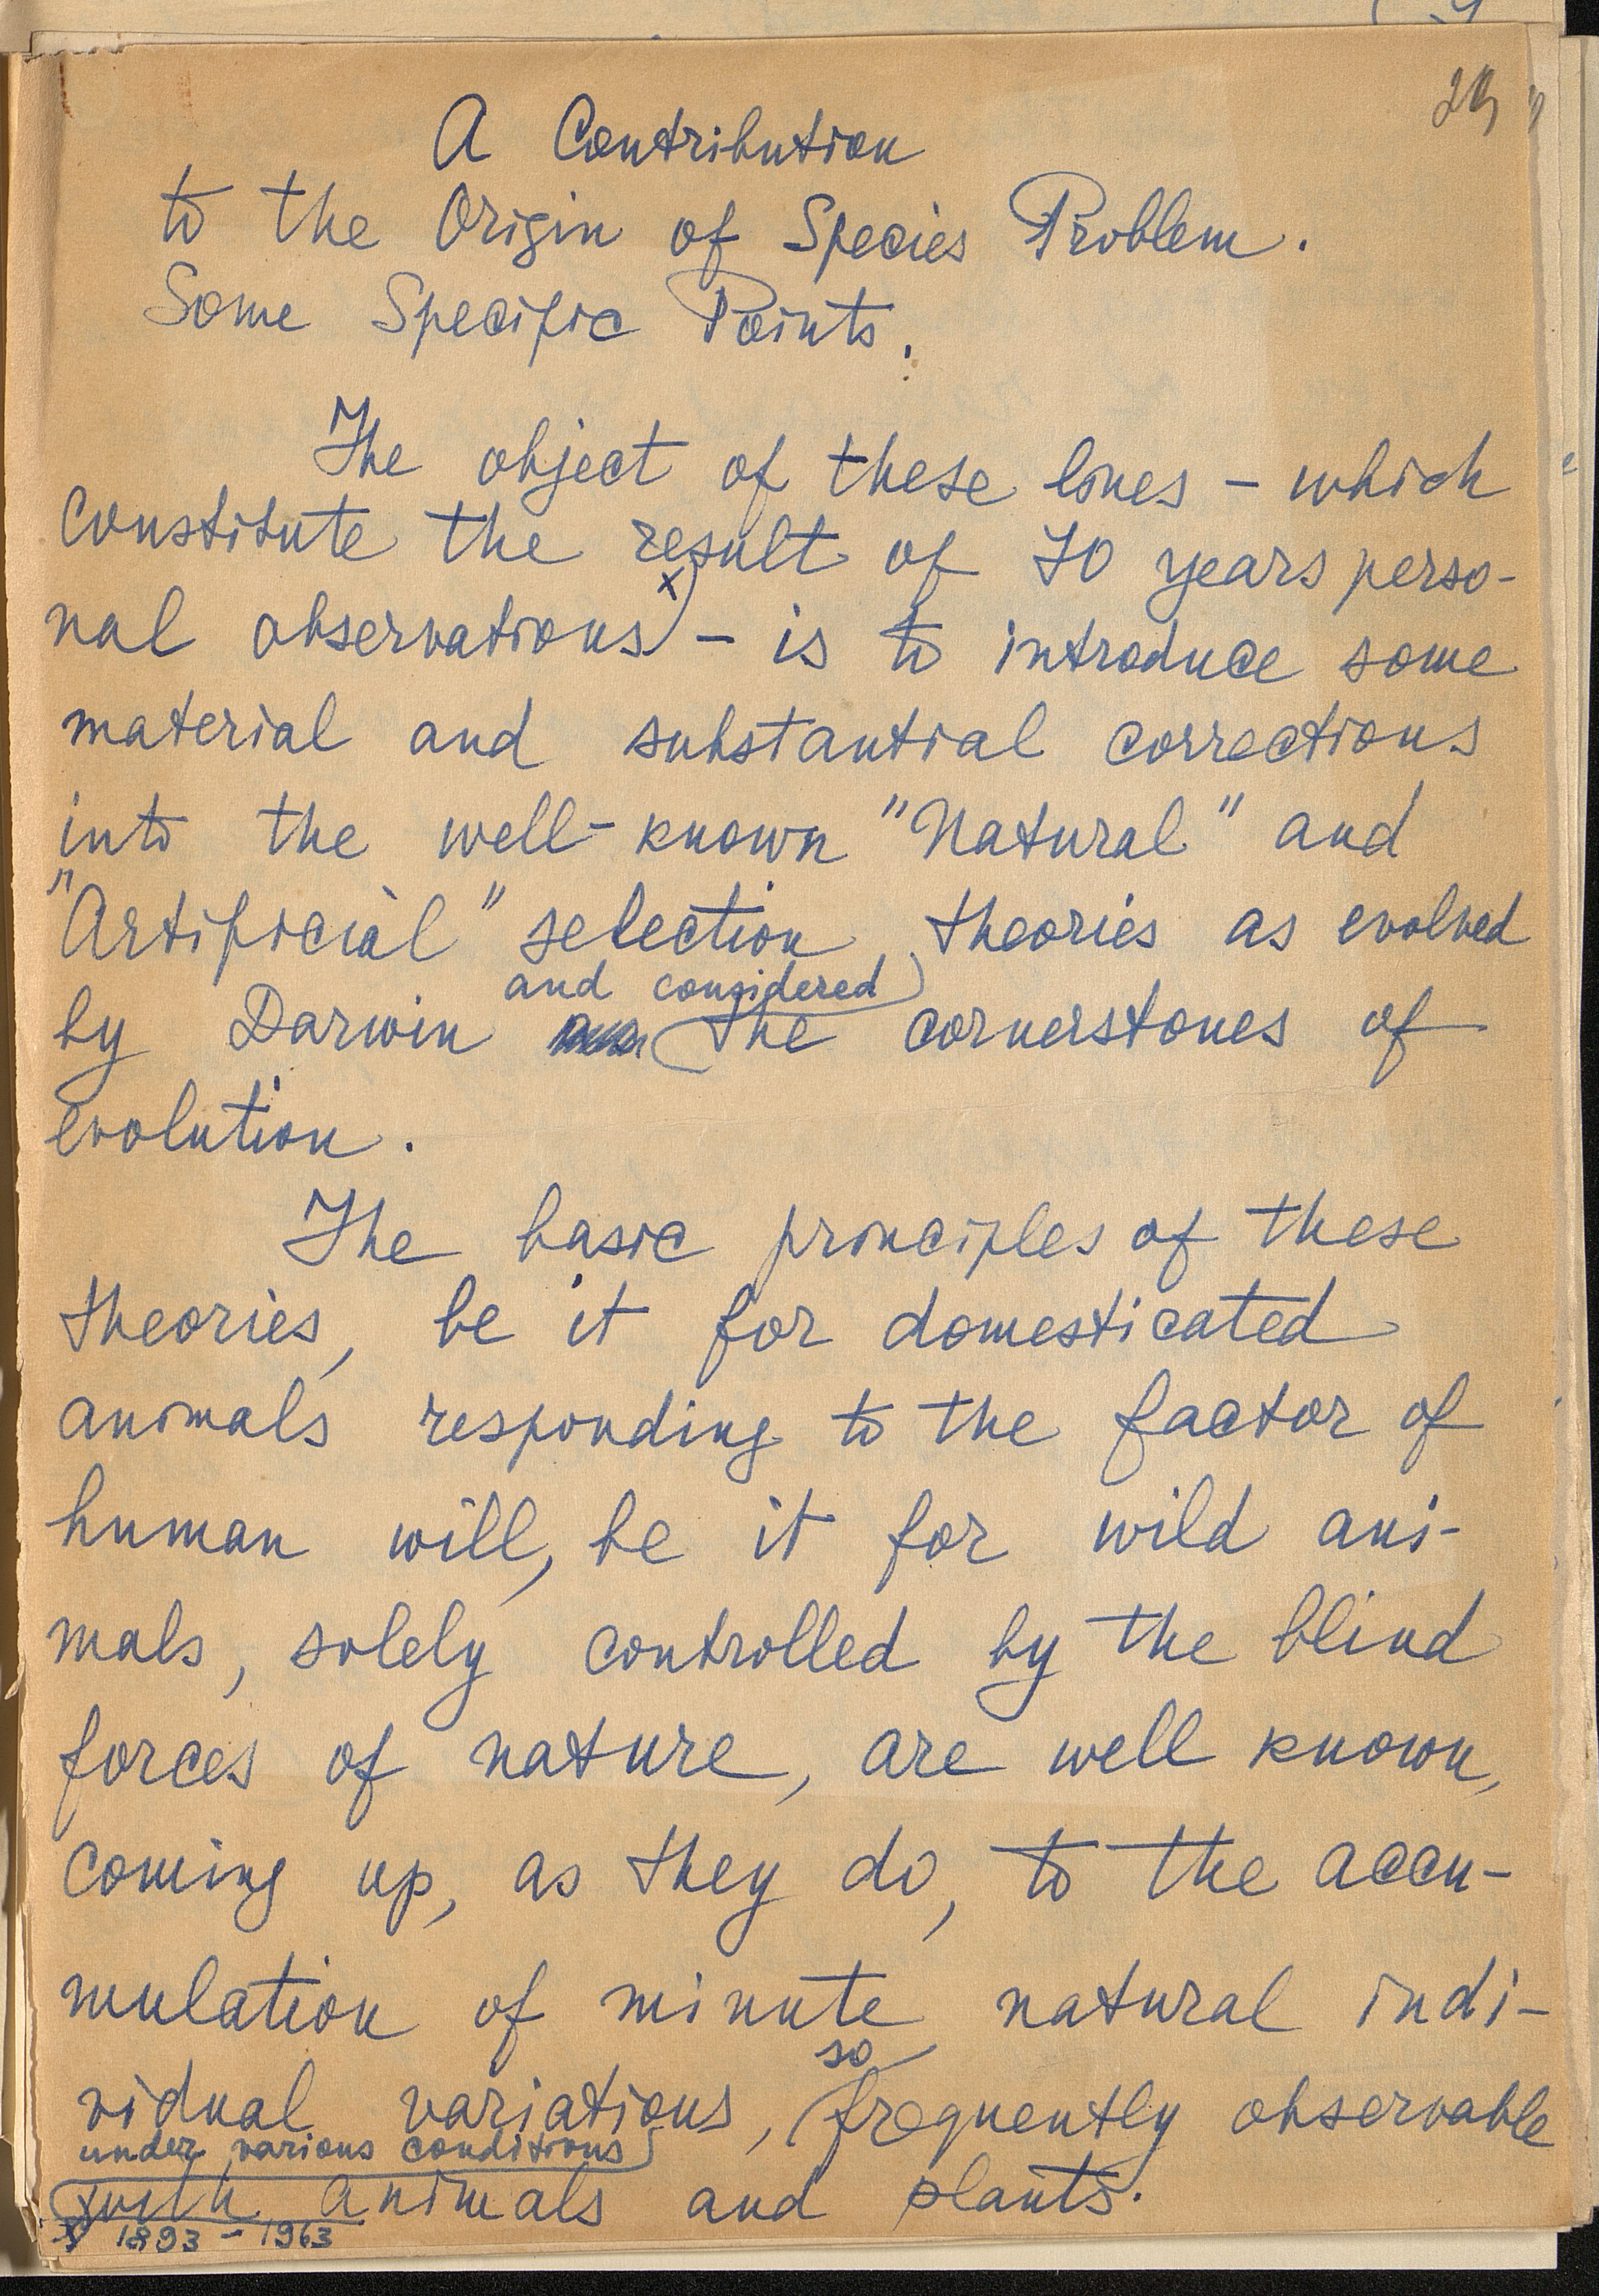 A Contribution
to the Origin of Species Problem.
Some Specific Points.
The object of these lines – which
constitute the result of 70 years perso-
nal observations x) – is to introduce some
material and substantial corrections
into the well-known "Natural" and
"Artificial" selection theories as evolved
and considered
by Darwin the cornerstones of
evolution.
The basic principles of these
theories, be it for domesticated
animals responding to the factor of
human will, be it for wild ani-
mals, solely controlled by the blind
forces of nature, are well known,
coming up, as they do, to the accu-
mulation of minute natural indi-
so
vidual variations, frequently observable
under various conditions
with animals and plants.
x 1893 – 1963